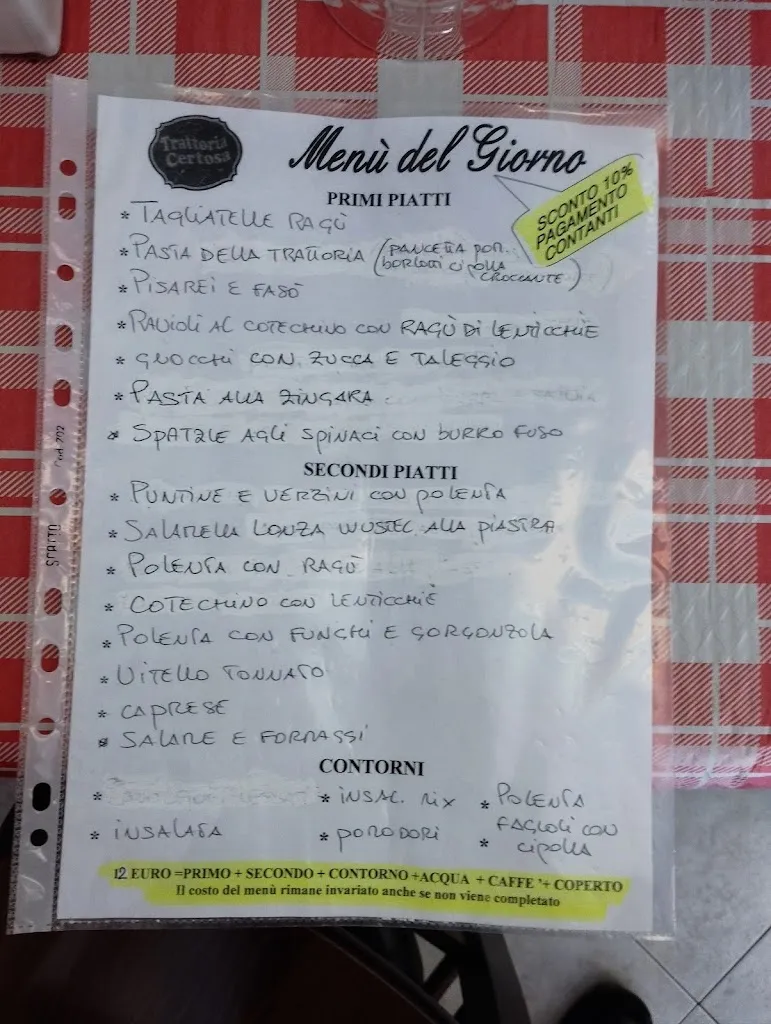 Trattoria
Certosa
Menù del Giorno
SCONTO 10%
PAGAMENTO
CONTANTI
PRIMI PIATTI
* TAGLIATELLE RAGÙ
* PASTA DELLA TRATTORIA (PANCETTA POM.
borlotti cipolla
CROCCANTE)
* PISAREI E FASÒ
* RAVIOLI AL COTECHINO CON RAGÙ DI LENTICCHIE
* GNOCCHI CON ZUCCA E TALEGGIO
* PASTA ALLA ZINGARA
* SPATZLE AGLI SPINACI CON BURRO FUSO
SECONDI PIATTI
* PUNTINE E VERZINI CON POLENTA
* SALAMELLA LONZA WUSTEL ALLA PIASTRA
* POLENTA CON RAGÙ
* COTECHINO CON LENTICCHIE
* POLENTA CON FUNGHI E GORGONZOLA
* VITELLO TONNATO
* CAPRESE
* SALAME E FORMAGGI
CONTORNI
* * INSAL. MIX * POLENTA
* INSALATA * POMODORI * FAGIOLI CON
CIPOLLA
12 EURO =PRIMO + SECONDO + CONTORNO +ACQUA + CAFFE '+ COPERTO
Il costo del menù rimane invariato anche se non viene completato